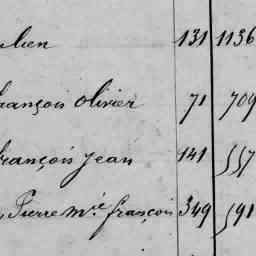 lien 131 1136
françois olivier 71 709
françois jean 141 557
Pierre Mie françois 349 591